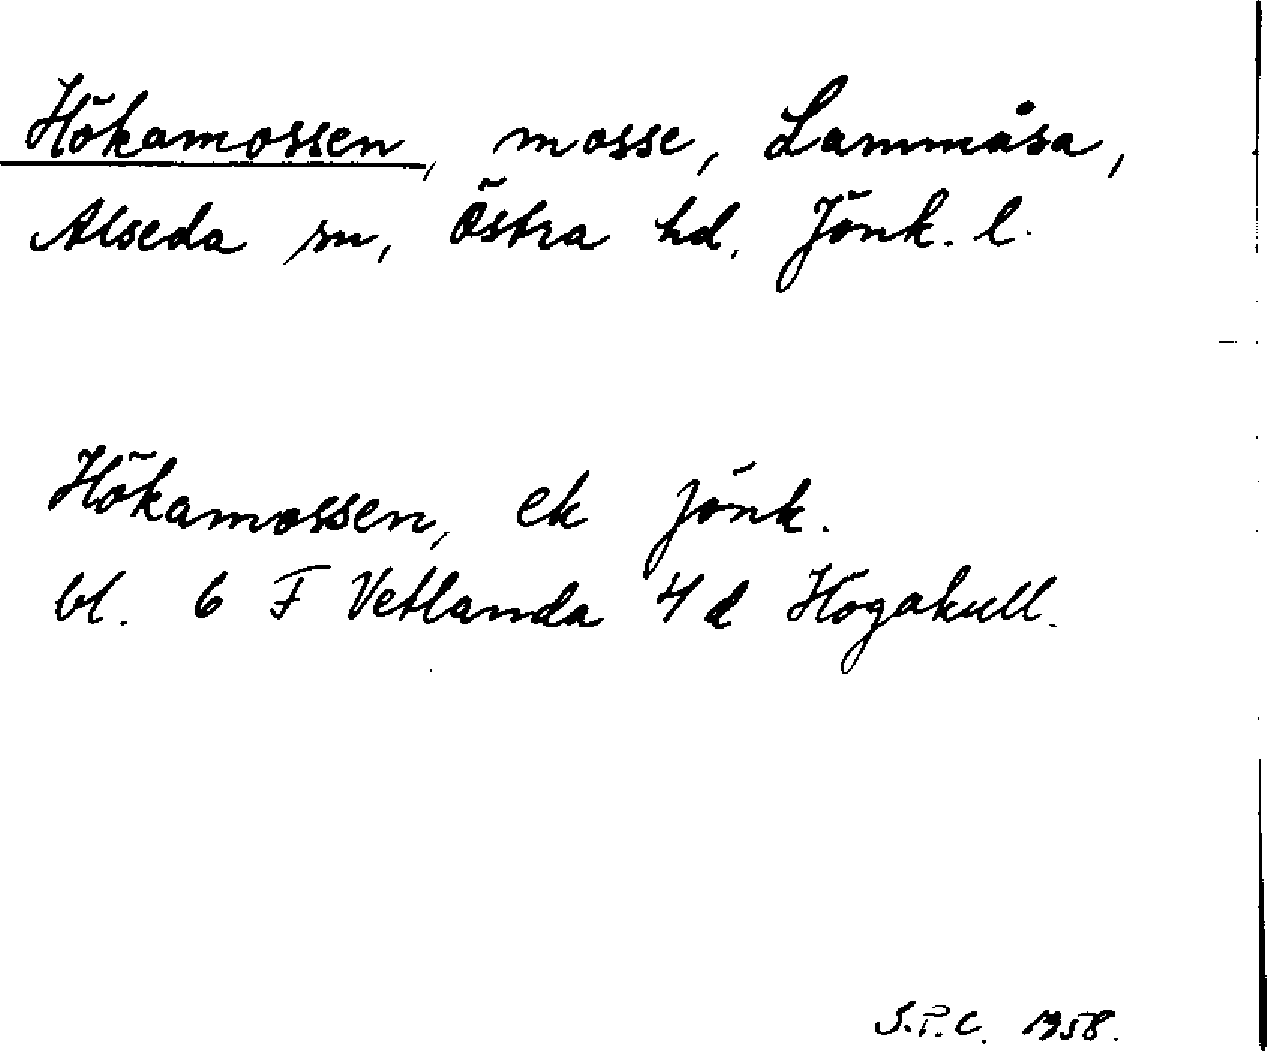 Hökamossen, mosse, Lammåsa,
Alseda sn, Östra hd. Jönk. l.
Hökamossen, ek Jönk.
bl. 6 F Vetlanda 4 d Hogakull.
S.P.C. 1958.